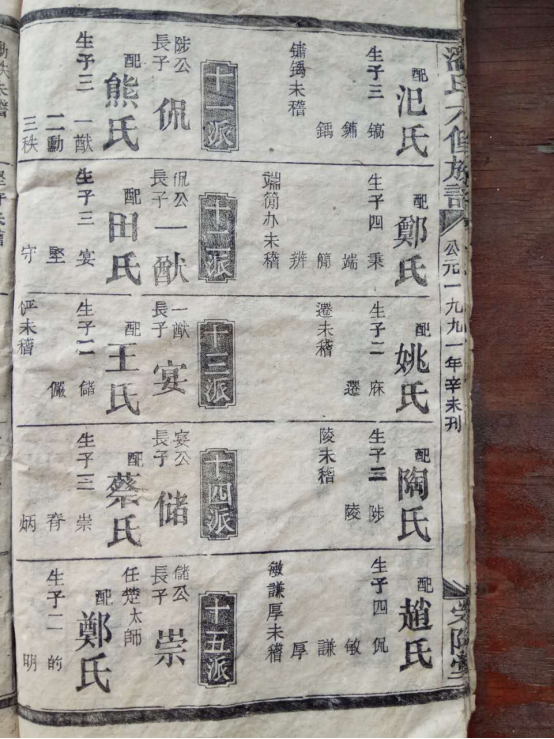 潘氏六修族譜
公元一九九一年辛未刊
配 氾氏
生子三 鎬
鏞
鐊
鏞鐊未稽
十一派
陟公
長子 侃
配 熊氏
生子三 一猷
二勳
三秩
配 鄭氏
生子四 秉
端
簡
辨
端簡办未稽
十二派
侃公
長子 一猷
配 田氏
生子三 宴
堅
守
配 姚氏
生子二 麻
遷
遷未稽
十三派
一猷
長子 宴
配 王氏
生子二 儲
儼
未稽
配 陶氏
生子二 陟
陵
陵未稽
十四派
宴公
長子 储
配 蔡氏
生子三 崇
脊
炳
配 趙氏
生子四 侃
敏
謙
厚
敏謙厚未稽
十五派
儲公
長子 崇
任楚太師
配 鄭氏
生子二 的
明